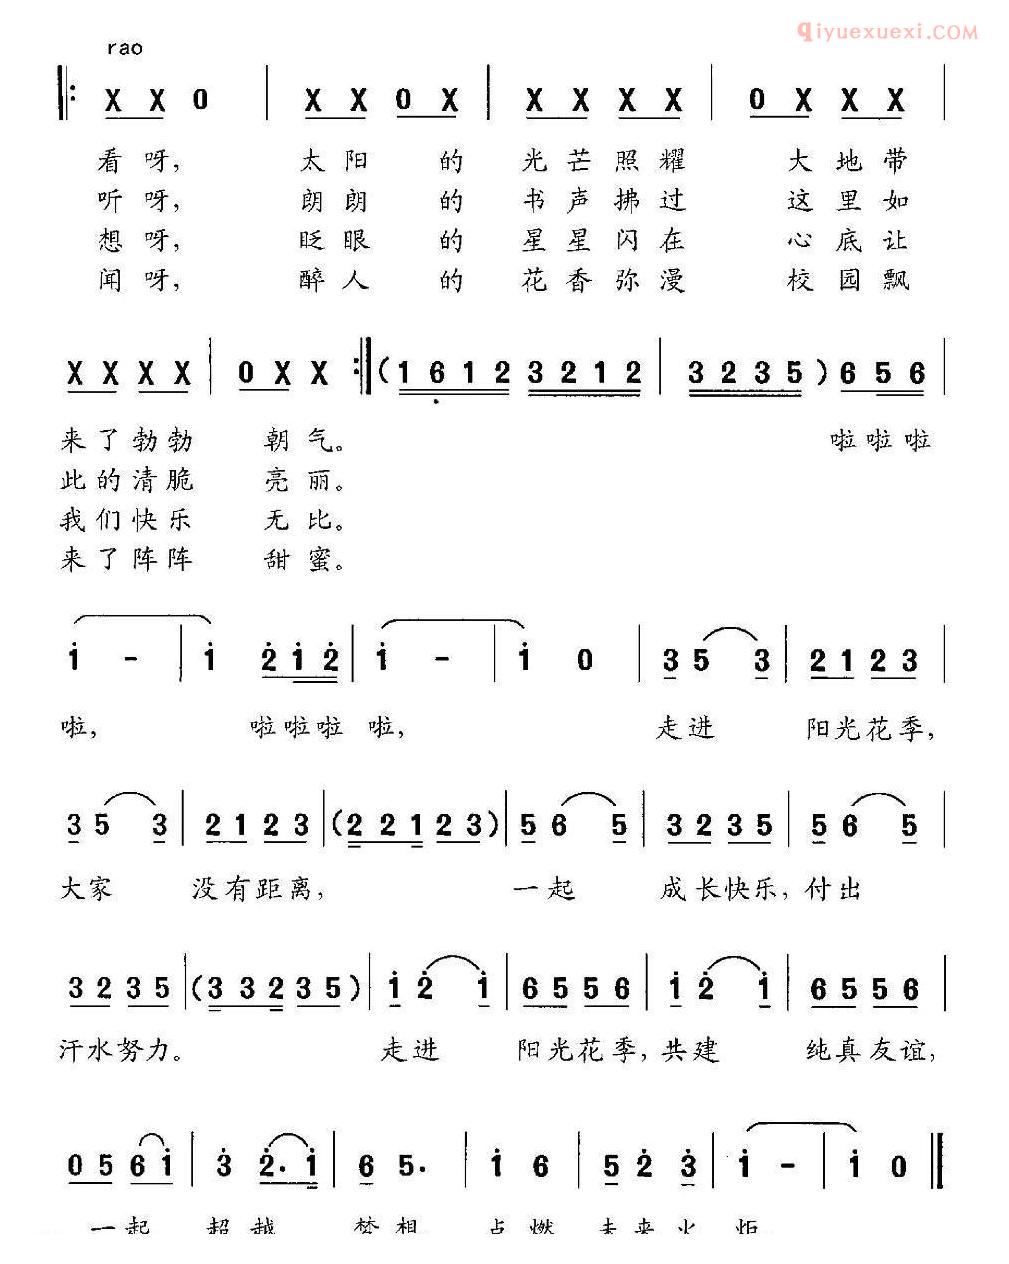 qiyuexuexi.COM
rao
X X 0 | X X 0 X | X X X X | 0 X X X |
看呀， 太阳 的 光芒照耀 大地带
听呀， 朗朗 的 书声拂过 这里如
想呀， 眨眼 的 星星闪在 心底让
闻呀， 醉人 的 花香弥漫 校园飘
X X X X | 0 X X :| (1 6 1 2 3 2 1 2 | 3 2 3 5) 6 5 6 |
来了勃勃 朝气。 啦啦啦
此的清脆 亮丽。
我们快乐 无比。
来了阵阵 甜蜜。
1 - | 1 2 1 2 | 1 - | 1 0 | 3 5 3 | 2 1 2 3 |
啦， 啦啦啦 啦， 走进 阳光花季，
3 5 3 | 2 1 2 3 | (2 2 1 2 3) | 5 6 5 | 3 2 3 5 | 5 6 5 |
大家 没有距离， 一起 成长快乐，付出
3 2 3 5 | (3 3 2 3 5) | 1 2 1 | 6 5 5 6 | 1 2 1 | 6 5 5 6 |
汗水努力。 走进 阳光花季，共建 纯真友谊，
0 5 6 1 | 3 2. 1 | 6 5. | 1 6 | 5 2 3 | 1 - | 1 0 ‖
一起 超越 梦想 点燃 未来火 炬